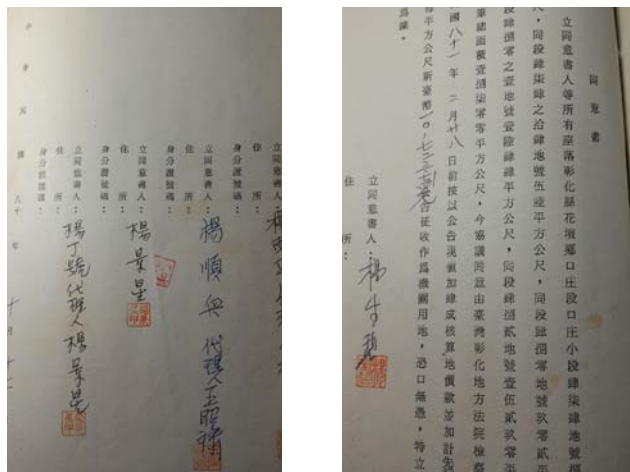 同意書
立同意書人等所有座落彰化縣花壇鄉口庄段口庄小段肆柒肆地號
尺，同段肆柒肆之拾肆地號伍座平方公尺，同段肆捌零地號玖零貳
段肆捌零之壹地號壹陸肆肆平方公尺，同段肆捌貳地號壹伍貳玖零
筆總面積壹捌柒零零平方公尺，今協議同意由臺灣彰化地方法院檢察
國八十一年二月廿八日前按以公告現值加肆成核算地價款並加計先
每平方公尺新臺幣一〇,七二三元公告征收作為機關用地，恐口無憑，特立
為據。
立同意書人：楊生
住所：
立同意書人：楊
住所：
身分證號碼：
立同意書人：楊順興代理人王昭祿
住所：
身分證號碼：
立同意書人：楊景星
住所：
身分證號碼：
立同意書人：楊丁號代理人楊景星
住所：
身分證號碼：
中華民國八十年十月十